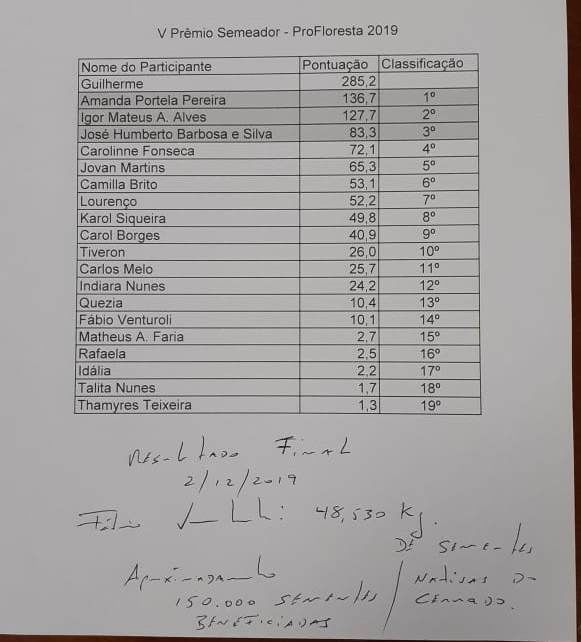 V Prêmio Semeador - ProFloresta 2019
Nome do Participante Pontuação Classificação
Guilherme 285,2
Amanda Portela Pereira 136,7 1º
Igor Mateus A. Alves 127,7 2º
José Humberto Barbosa e Silva 83,3 3º
Carolinne Fonseca 72,1 4º
Jovan Martins 65,3 5º
Camilla Brito 53,1 6º
Lourenço 52,2 7º
Karol Siqueira 49,8 8º
Carol Borges 40,9 9º
Tiveron 26,0 10º
Carlos Melo 25,7 11º
Indiara Nunes 24,2 12º
Quezia 10,4 13º
Fábio Venturoli 10,1 14º
Matheus A. Faria 2,7 15º
Rafaela 2,5 16º
Idália 2,2 17º
Talita Nunes 1,7 18º
Thamyres Teixeira 1,3 19º
Resultado Final
2/12/2019
Fábio 48,530 kg.
DE SEMENTES
NATIVAS DO
CERRADO.
Aproximadamente
150.000 SEMENTES
BENEFICIADAS